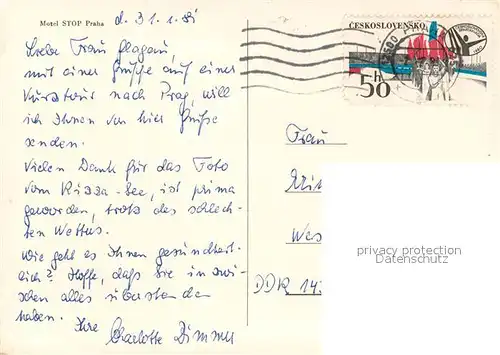 Motel STOP Praha
d. 31.1.81
Liebe Frau Glagau,
mit einer Gruppe auf einer
Kurztour nach Prag, will
ich Ihnen von hier Grüße
senden.
Vielen Dank für das Foto
vom Rizza-See, ist prima
geworden, trotz des schlech-
ten Wetters.
Wie geht es Ihnen gesundheit-
lich? Hoffe, daß Sie inzwi-
schen alles überstanden
haben. Ihre
Charlotte Dimmer
ČESKOSLOVENSKO
50 h
Frau
Wes
DDR 14
privacy protection
Datenschutz